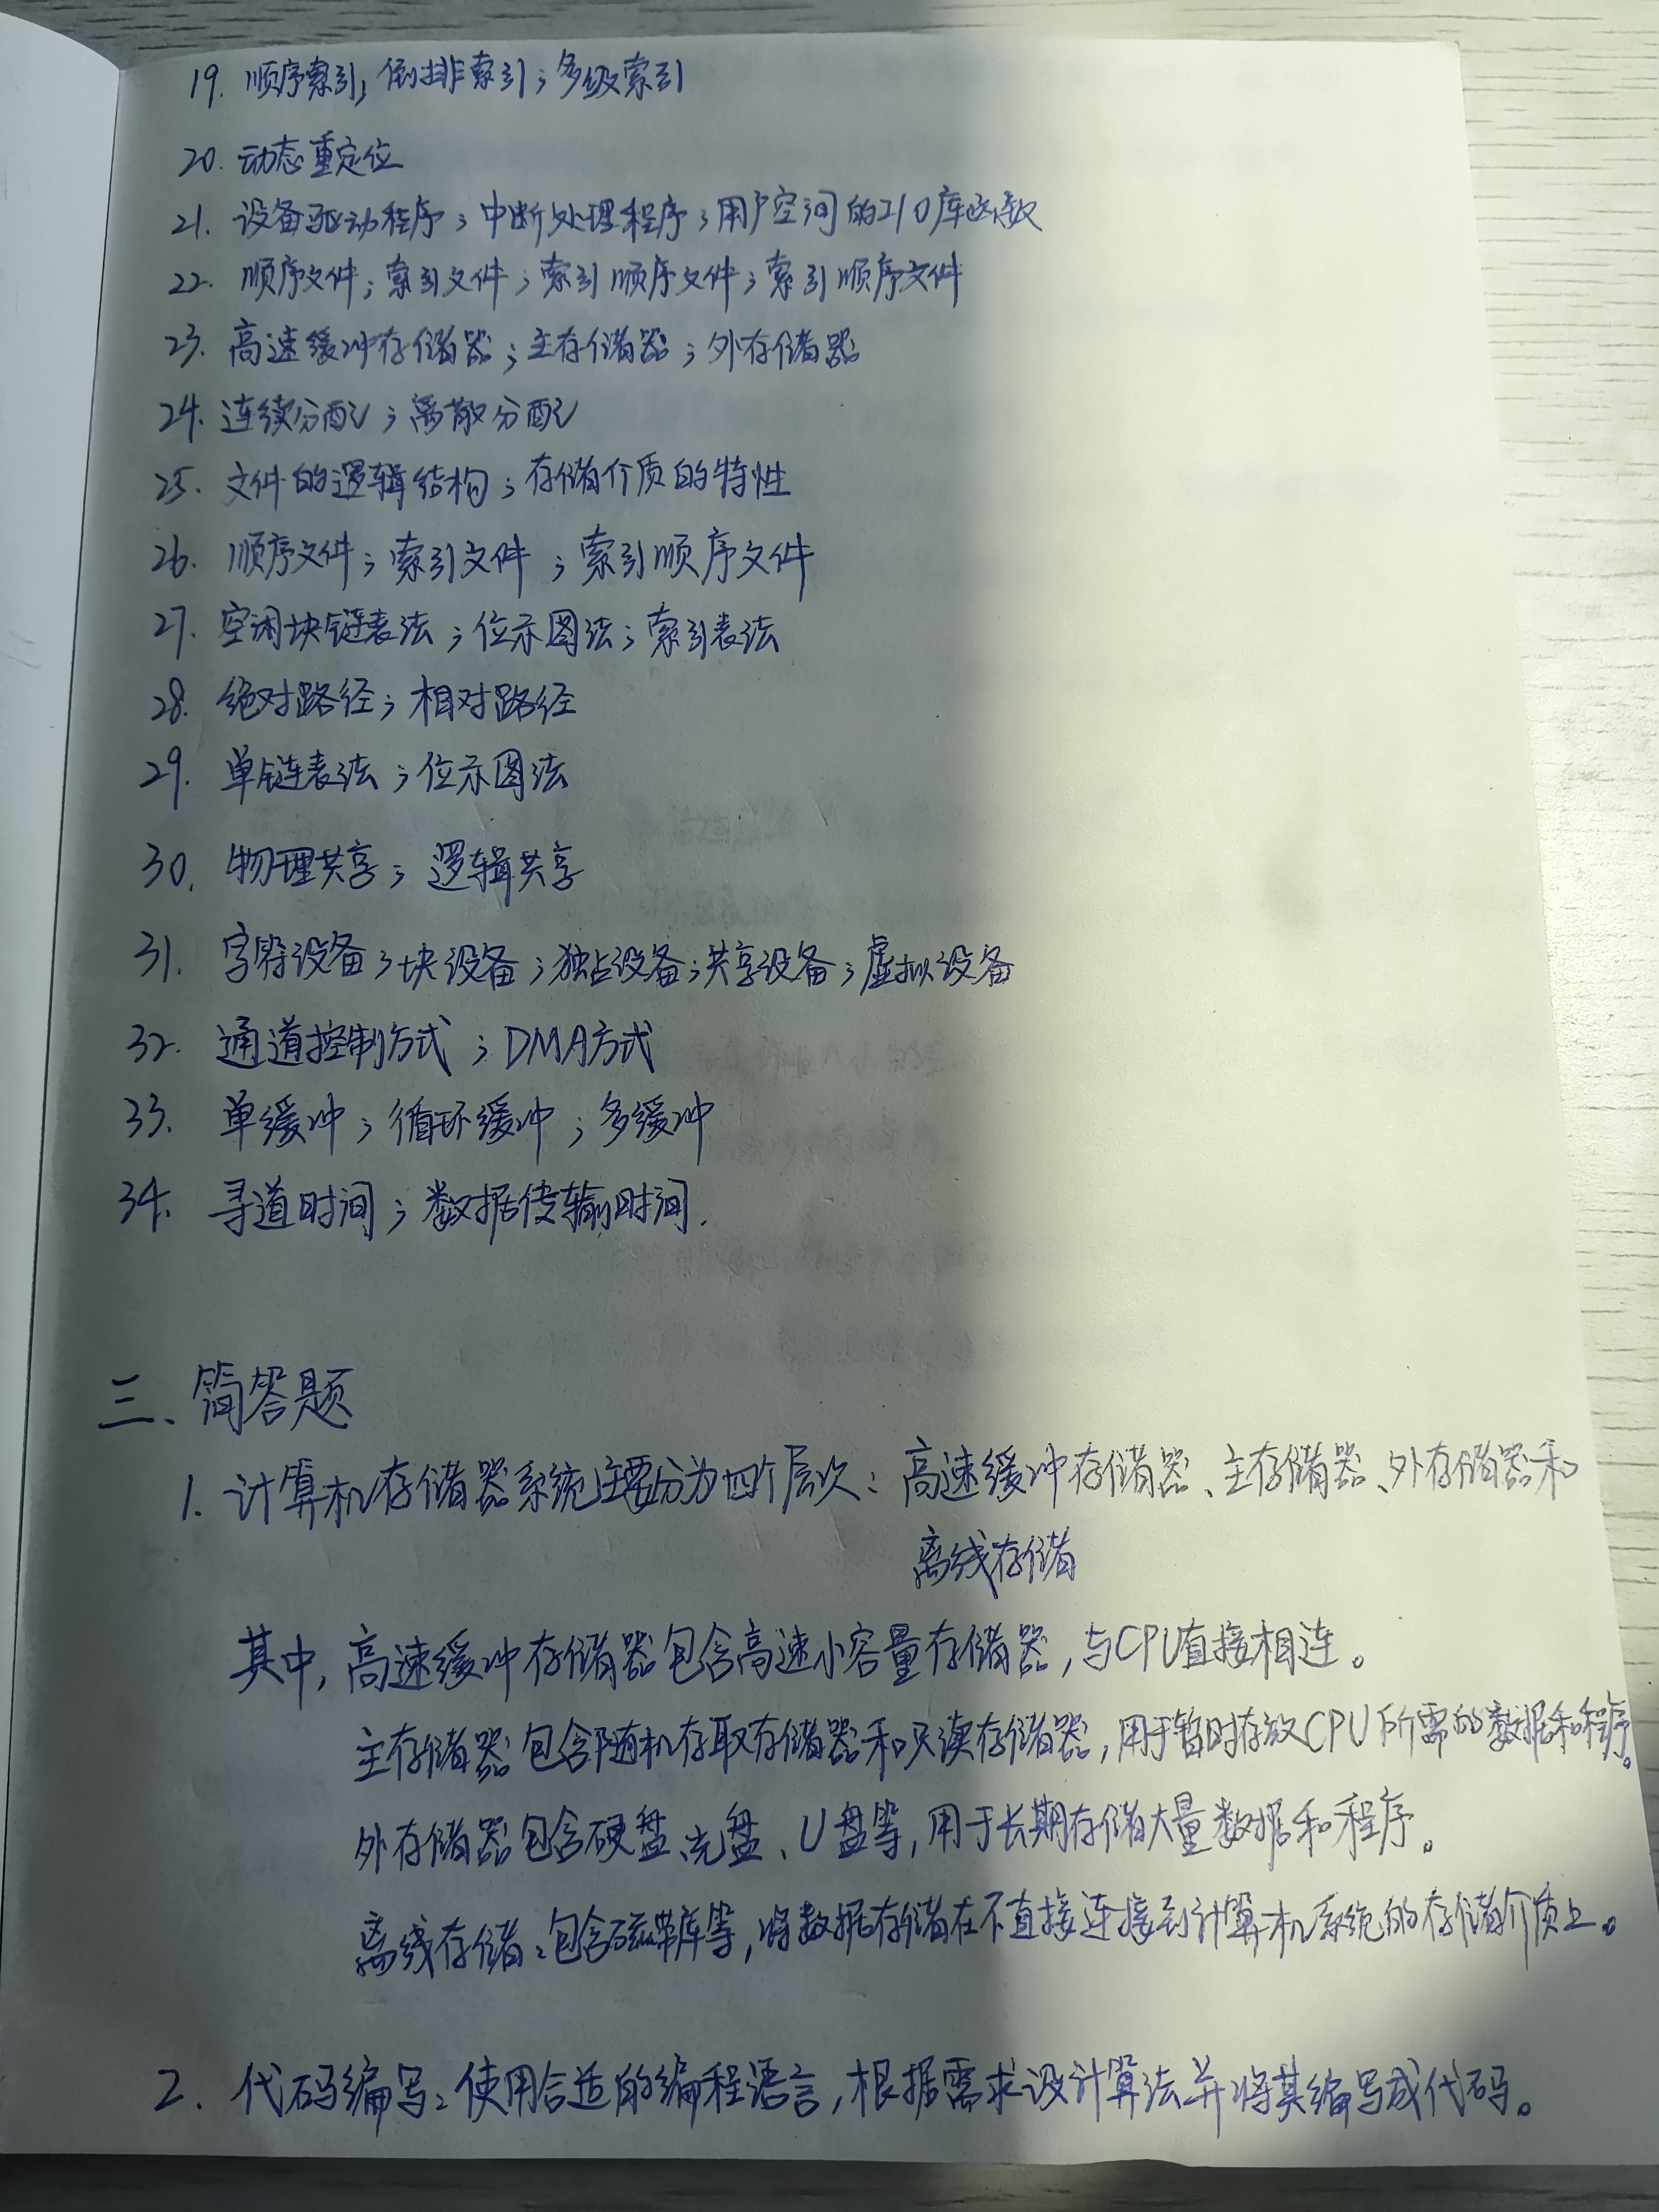 19. 顺序索引；倒排索引；多级索引
20. 动态重定位
21. 设备驱动程序；中断处理程序；用户空间的I/O库函数
22. 顺序文件；索引文件；索引顺序文件；索引顺序文件
23. 高速缓冲存储器；主存储器；外存储器
24. 连续分配；离散分配
25. 文件的逻辑结构；存储介质的特性
26. 顺序文件；索引文件；索引顺序文件
27. 空闲块链表法；位示图法；索引表法
28. 绝对路径；相对路径
29. 单链表法；位示图法
30. 物理共享；逻辑共享
31. 字符设备；块设备；独占设备；共享设备；虚拟设备
32. 通道控制方式；DMA方式
33. 单缓冲；循环缓冲；多缓冲
34. 寻道时间；数据传输时间.
三、简答题
1. 计算机存储器系统主要分为四个层次：高速缓冲存储器、主存储器、外存储器和
离线存储
其中，高速缓冲存储器包含高速小容量存储器，与CPU直接相连。
主存储器包含随机存取存储器和只读存储器，用于暂时存放CPU所需的数据和程序。
外存储器包含硬盘、光盘、U盘等，用于长期存储大量数据和程序。
离线存储：包含磁带库等，将数据存储在不直接连接到计算机系统的存储介质上。
2. 代码编写：使用合适的编程语言，根据需求设计算法并将其编写成代码。